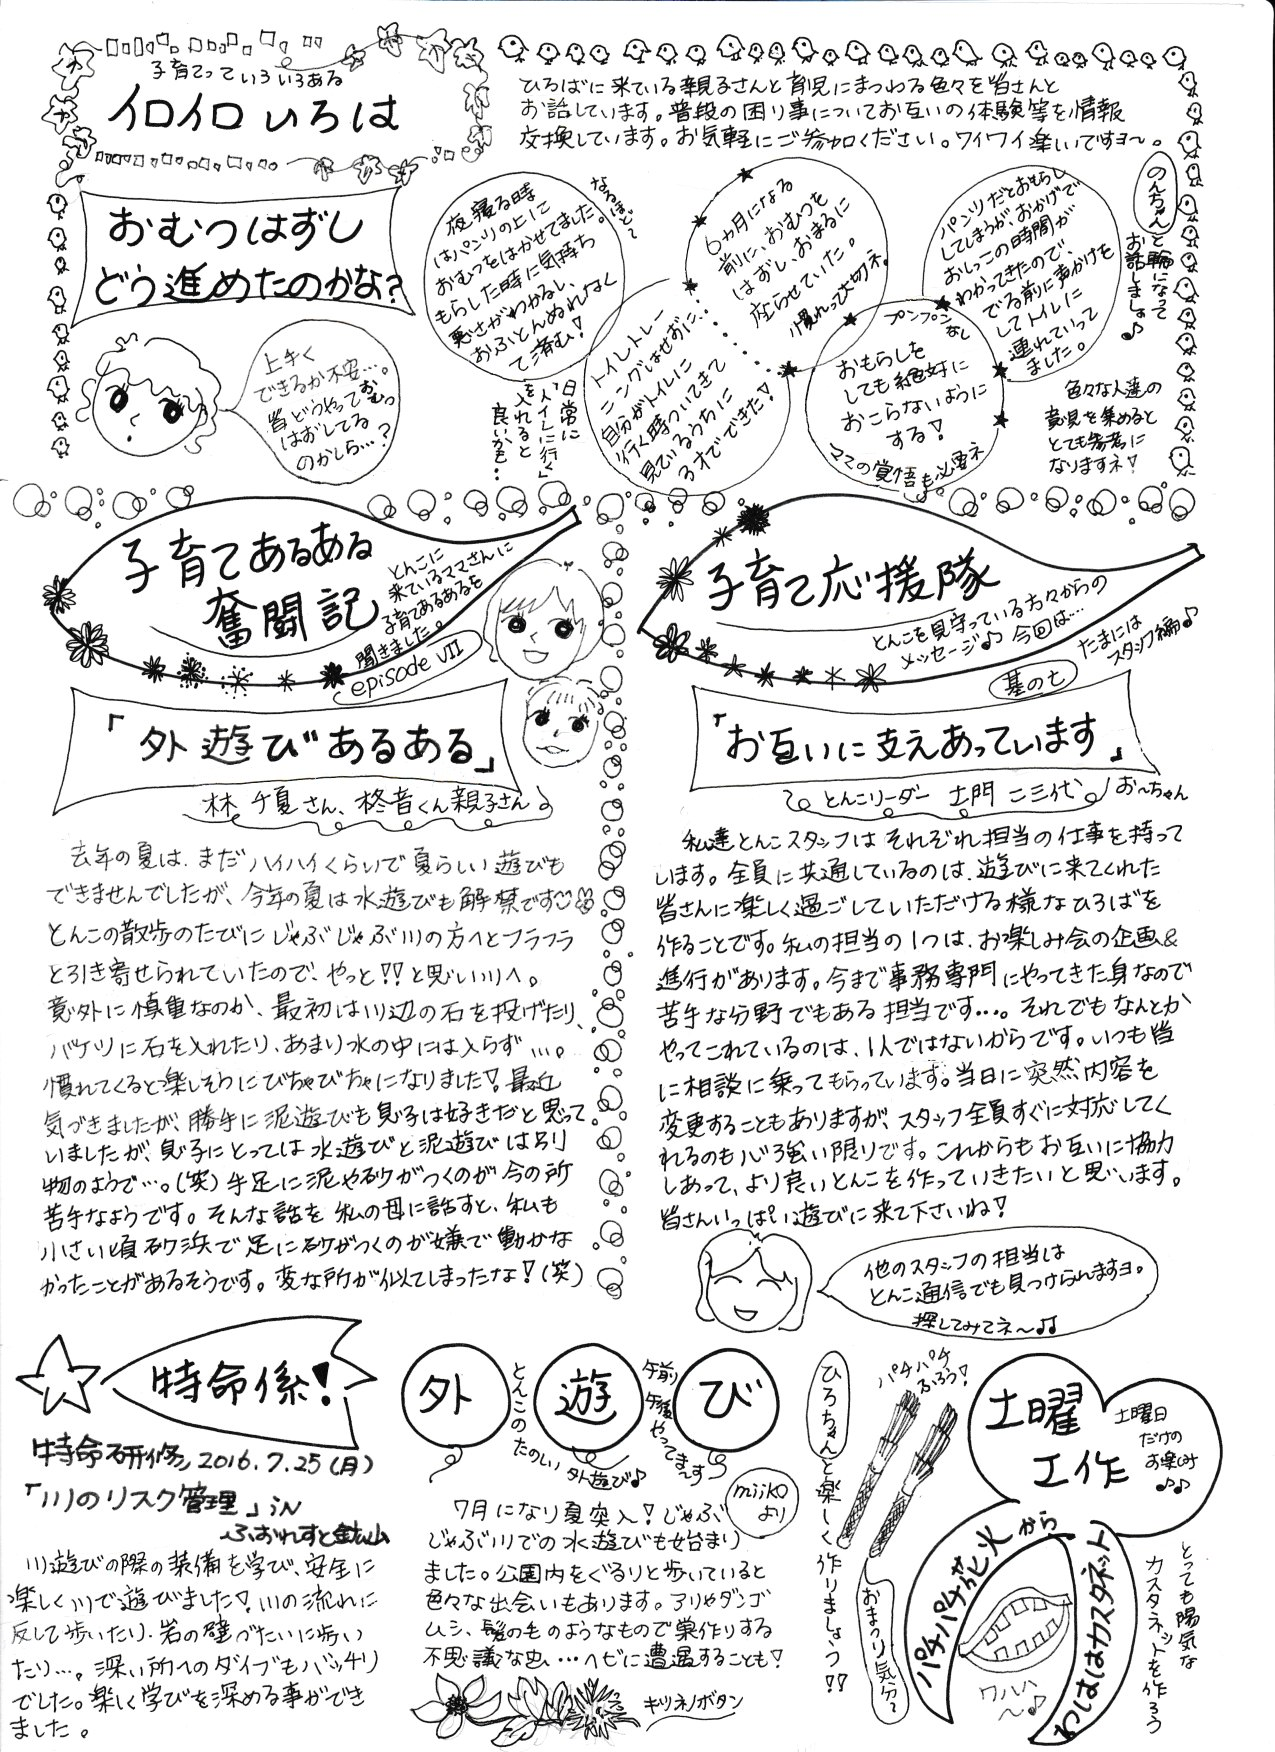 子育てっていろいろある
イロイロいろは
ひろばに来ている親子さんと育児にまつわる色々を皆さんと
お話しています。普段の困り事についてお互いの体験等を情報
交換しています。お気軽にご参加ください。ワイワイ楽しいですヨ~。
のんちゃんと輪になって
お話しましょ♪
おむつはずし
どう進めたのかな?
上手く
できるか不安…。
皆どうやっておむつ
はずしてる
のかしら…?
夜寝る時
はパンツの上に
おむつをはかせてました。
もらした時に気持ち
悪さがわかるし、
おふとんぬれなく
て済む!
なるほど~
トイレトレー
ニングはせずに、
自分がトイレに
行く時ついてきて
見ているうちに
3才でできた!
日常に
"トイレに行く"
を入れると
良いかも…
6ヵ月になる
前に、おむつを
はずし、おまるに
座らせていた。
慣れって大切ネ。
おもらしを
しても絶対に
おこらないように
する!
プンプンなし
ママの覚悟も必要ネ
パンツだとおもらし
してしまうが、おかげで
おしっこの時間が
わかってきたので、
でる前に声かけを
してトイレに
連れていって
ました。
色々な人達の
意見を集めると
とても参考に
なりますネ!
子育てあるある
奮闘記
とんこに
来ているママさんに
子育てあるあるを
聞きました。
episode VII
「外遊びあるある」
林 千夏さん、柊音くん親子さん
去年の夏は、まだハイハイくらいで夏らしい遊びも
できませんでしたが、今年の夏は水遊びも解禁です
とんこの散歩のたびにじゃぶじゃぶ川の方へとフラフラ
と引き寄せられていたので、やっと!!と思い川へ。
意外に慎重なのか、最初は川辺の石を投げたり、
バケツに石を入れたり、あまり水の中には入らず…。
慣れてくると楽しそうにびちゃびちゃになりました!最近
気づきましたが、勝手に泥遊びも息子は好きだと思って
いましたが、息子にとっては水遊びと泥遊びは別
物のようで…。(笑)手足に泥や砂がつくのが今の所
苦手なようです。そんな話を私の母に話すと、私も
小さい頃砂浜で足に砂がつくのが嫌で動かな
かったことがあるそうです。変な所が似てしまったな!(笑)
子育て応援隊
とんこを見守っている方々からの
メッセージ♪♪今回は…
たまには
スタッフ編♪
其の七
「お互いに支えあっています」
とんこリーダー 土門 二三代 おーちゃん
私達とんこスタッフはそれぞれ担当の仕事を持って
います。全員に共通しているのは、遊びに来てくれた
皆さんに楽しく過ごしていただける様なひろばを
作ることです。私の担当の1つは、お楽しみ会の企画&
進行があります。今まで事務専門にやってきた身なので
苦手な分野でもある担当です…。それでもなんとか
やってこれているのは、1人ではないからです。いつも皆
に相談に乗ってもらっています。当日に突然内容を
変更することもありますが、スタッフ全員すぐに対応してく
れるのも心強い限りです。これからもお互いに協力
しあって、より良いとんこを作っていきたいと思います。
皆さんいっぱい遊びに来て下さいね!
他のスタッフの担当は
とんこ通信でも見つけられますヨ。
探してみてネ~♪♪
特命係!
特命研修 2016.7.25(月)
「川のリスク管理」in
ふぉれすと鉱山
川遊びの際の装備を学び、安全に
楽しく川で遊びました!川の流れに
反して歩いたり、岩の壁づたいに歩い
たり…。深い所へのダイブもバッチリ
でした。楽しく学びを深める事ができ
ました。
外遊び
とんこのたのしい外遊び♪
午前
午後
やってま~す
miikoより
7月になり夏突入!じゃぶ
じゃぶ川での水遊びも始まり
ました。公園内をぐるりと歩いていると
色々な出会いもあります。アリやダンゴ
ムシ、髪のもののようなもので巣作りする
不思議な虫…ヘビに遭遇することも!
キツネノボタン
ひろちゃんと楽しく作りましょう!!
パチパチ
ふろう!
おまつり気分~
土曜
工作
土曜日
だけの
お楽しみ
♪♪
パチパチ花火から
わははカスタネット
ワハハ
~♪
とっても陽気な
カスタネットを作ろう